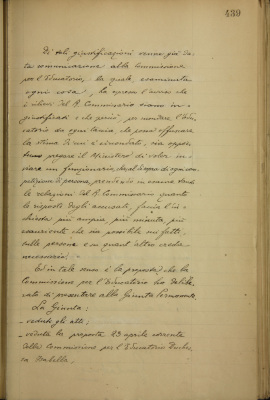 439
Di tali giustificazioni venne poi da-
ta comunicazione alla Commissione
per l'Educatorio, la quale, esaminata
ogni cosa, ha espresso l'avviso che
i rilievi del R. Commissario siano in-
giustificati e che perciò, per mondare l'Edu-
catorio da ogni taccia che possa offuscare
la stima di cui è circondato, sia oppor-
tuno pregare il Ministero di voler in-
viare un funzionario, che al di sopra di ogni com-
petizione di persone, prendendo in esame tanto
le relazioni del R. Commissario quanto
le risposte degli accusati, faccia l'in-
chiesta più ampia, più minuta, più
esauriente che sia possibile sui fatti,
sulle persone e su quant'altro creda
necessario.
Ed in tale senso è la proposta che la
Commissione per l'Educatorio ha delibe-
rato di presentare alla Giunta Permanente.
La Giunta:
- veduti gli atti;
- veduta la proposta 23 aprile corrente
della Commissione per l'Educatorio Duches-
sa Isabella.